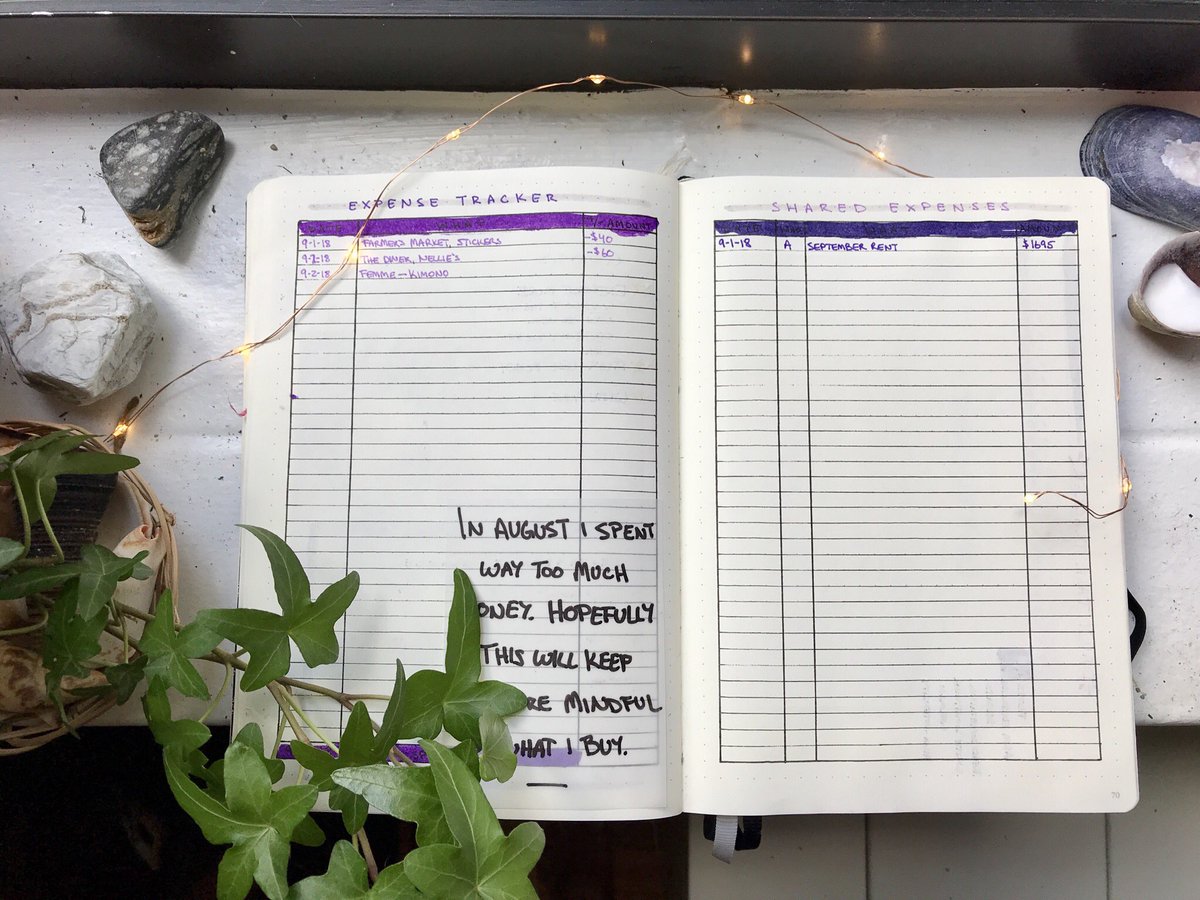 EXPENSE TRACKER
AMOUNT
9-1-18 FARMER'S MARKET, STICKERS -$40
9-2-18 THE DINER, NELLIE'S -$60
9-2-18 FEMME - KIMONO
IN AUGUST I SPENT
WAY TOO MUCH
ONEY. HOPEFULLY
THIS WILL KEEP
RE MINDFUL
HAT I BUY.
SHARED EXPENSES
AMOUNT
9-1-18 A SEPTEMBER RENT $1695
70